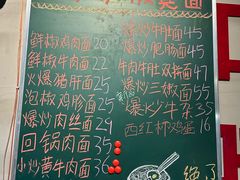 面
鲜椒鸡肉面20
鲜椒牛肉面22
火爆猪肝面25
泡椒鸡胗面25
爆炒肉丝面29
回锅肉面35
小炒黄牛肉面36
爆炒牛肚面45
爆炒肥肠面45
牛肉牛肚双拼面47
爆炒三嫩面55
爆炒牛杂35
西红柿鸡蛋16
绝了